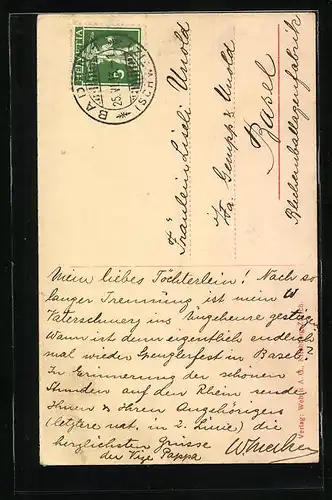 HELVETIA
5
BADEN
25.VI.
(SCHWEIZ)
Fräulein Liseli Unold
Fa. Gempp & Unold
Basel
Blechemballagenfabrik
Mein liebes Töchterlein! Nach so
langer Trennung ist mein
Vaterschmerz ins Ungeheure gestiegen
Wann ist denn eigentlich endlich
mal wieder Spenglerfest in Basel?
In Erinnerung der schönen
Stunden auf dem Rhein sende
Ihnen & Ihren Angehörigen
(letztere nat. in 2. Linie) die
herzlichsten Grüsse
der Vize Pappa
Verlag: Wehrli A.G.,